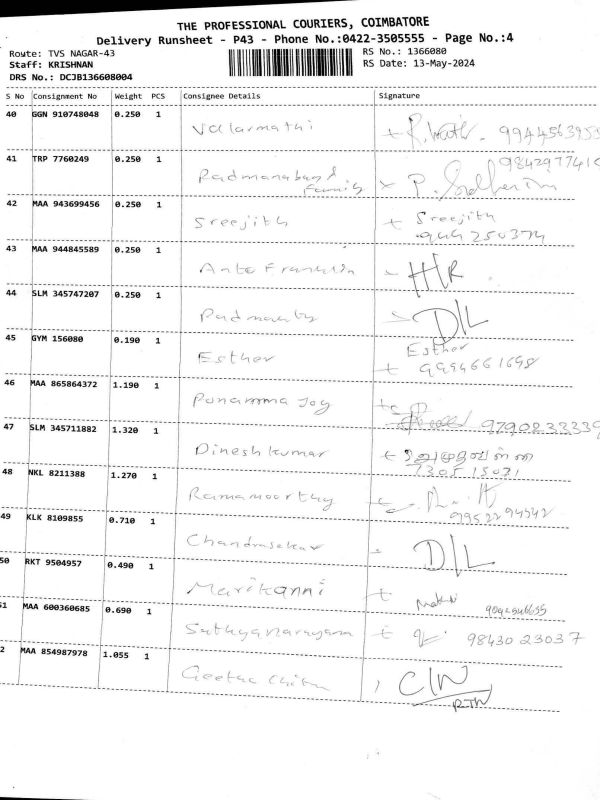 THE PROFESSIONAL COURIERS, COIMBATORE
Delivery Runsheet - P43 - Phone No.:0422-3505555 - Page No.:4
Route: TVS NAGAR-43 RS No.: 1366080
Staff: KRISHNAN RS Date: 13-May-2024
DRS No.: DCJB136608004
S No Consignment No Weight PCS Consignee Details Signature
40 GGN 910748048 0.250 1 Valarmathi
41 TRP 7760249 0.250 1 Padmanaban & Family
42 MAA 943699456 0.250 1 Sreejith Sreejith
43 MAA 944845589 0.250 1 Anto Franklin
44 SLM 345747207 0.250 1 D/L
45 GYM 156080 0.190 1 Esther Esther
9994661698
46 MAA 865864372 1.190 1 Ponamma Joy
47 SLM 345711882 1.320 1 Dinesh kumar
7305 15071
48 NKL 8211388 1.270 1 Ramamoorthy
49 KLK 8109855 0.710 1 Chandrasekar D/L
50 RKT 9504957 0.490 1 Marikanni
51 MAA 600360685 0.690 1 Sathyanarayana 98430 23037
2 MAA 854987978 1.055 1 Geetha